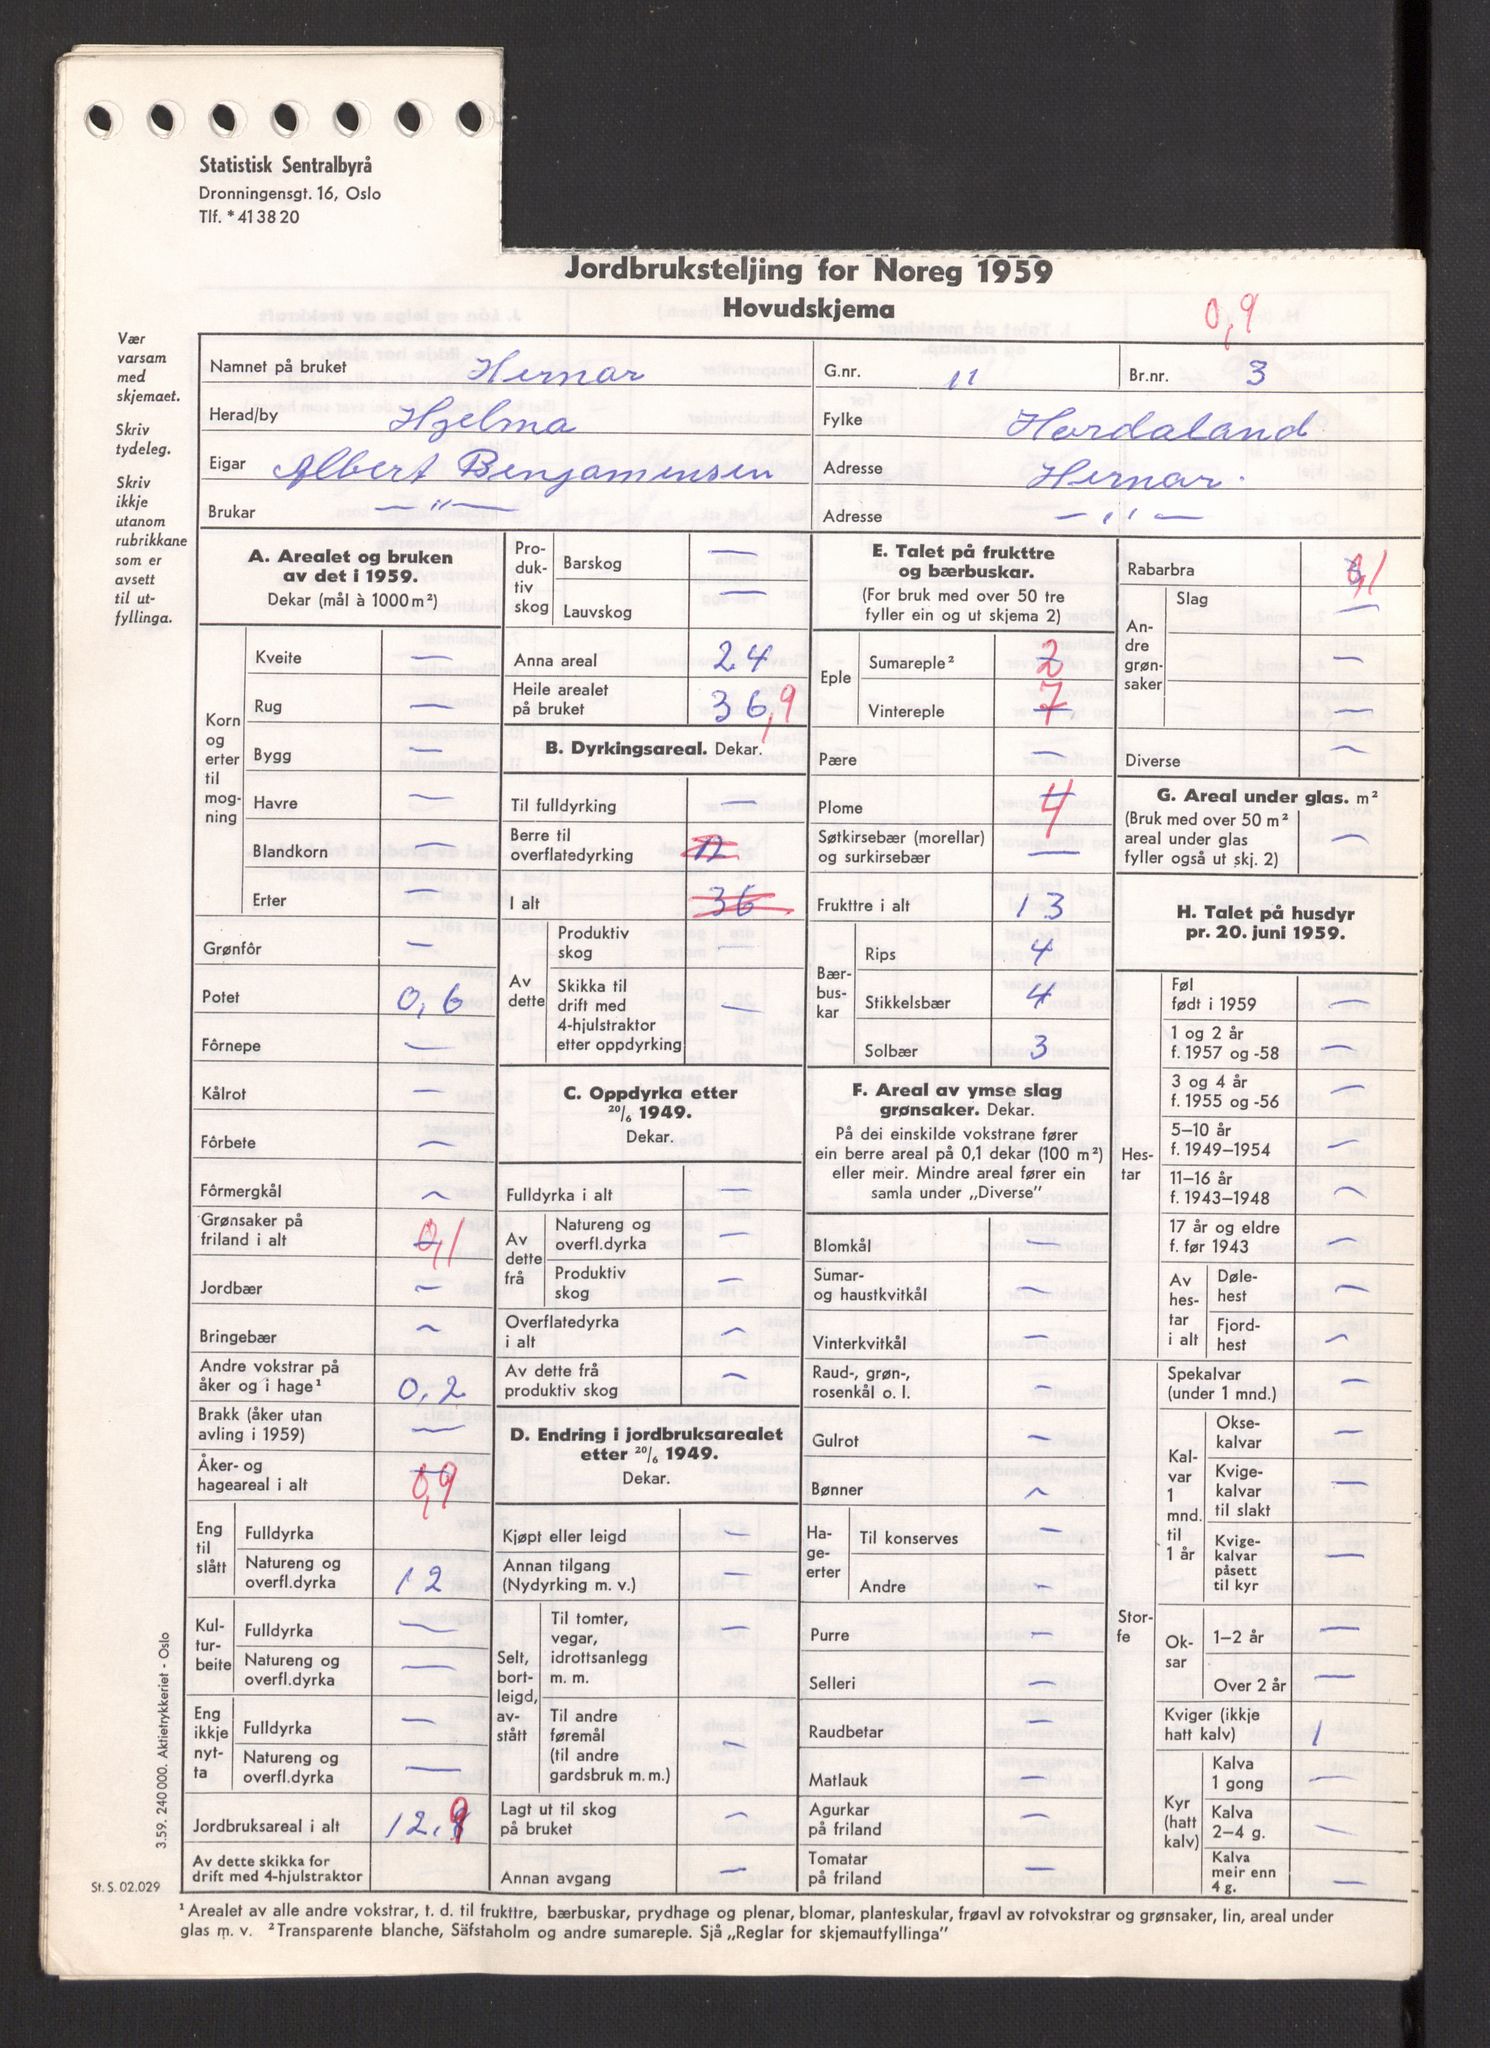 Statistisk Sentralbyrå
Dronningensgt. 16, Oslo
Tlf. * 41 38 20
Jordbruksteljing for Noreg 1959
Hovudskjema
0,9
Vær
varsam
med
skjemaet.
Skriv
tydeleg.
Skriv
ikkje
utanom
rubrikkane
som er
avsett
til ut-
fyllinga.
Namnet på bruket Hernar G.nr. 11 Br.nr. 3
Herad/by Hjelma Fylke Hordaland
Eigar Albert Benjaminsen Adresse Hernar.
Brukar — " — Adresse — " —
A. Arealet og bruken
av det i 1959.
Dekar (mål à 1000 m²)
Korn
og
erter
til
mog-
ning
Kveite —
Rug —
Bygg —
Havre —
Blandkorn —
Erter —
Grønfôr —
Potet 0,6
Fôrnepe —
Kålrot —
Fôrbete —
Fôrmergkål —
Grønsaker på
friland i alt 0,1
Jordbær —
Bringebær —
Andre vokstrar på
åker og i hage¹ 0,2
Brakk (åker utan
avling i 1959) —
Åker- og
hageareal i alt 0,9
Eng
til
slått
Fulldyrka —
Natureng og
overfl.dyrka 12
Kul-
tur-
beite
Fulldyrka —
Natureng og
overfl.dyrka —
Eng
ikkje
nyt-
ta
Fulldyrka —
Natureng og
overfl.dyrka —
Jordbruksareal i alt 12,9
Av dette skikka for
drift med 4-hjulstraktor
Pro-
duk-
tiv
skog
Barskog —
Lauvskog —
Anna areal 24
Heile arealet
på bruket 36,9
B. Dyrkingsareal. Dekar.
Til fulldyrking —
Berre til
overflatedyrking 12
I alt 36
Av
dette
Produktiv
skog —
Skikka til
drift med
4-hjulstraktor
etter oppdyrking —
C. Oppdyrka etter
20/6 1949.
Dekar.
Fulldyrka i alt —
Av
dette
frå
Natureng og
overfl.dyrka —
Produktiv
skog —
Overflatedyrka
i alt —
Av dette frå
produktiv skog —
D. Endring i jordbruksarealet
etter 20/6 1949.
Dekar.
Kjøpt eller leigd —
Annan tilgang
(Nydyrking m. v.) —
Selt,
bort-
leigd,
av-
stått
Til tomter,
vegar,
idrottsanlegg
m. m. —
Til andre
føremål
(til andre
gardsbruk m. m.) —
Lagt ut til skog
på bruket —
Annan avgang —
E. Talet på frukttre
og bærbuskar.
(For bruk med over 50 tre
fyller ein og ut skjema 2)
Eple
Sumareple² 2
Vintereple 7
Pære —
Plome 4
Søtkirsebær (morellar)
og surkirsebær —
Frukttre i alt 13
Bær-
bus-
kar
Rips 4
Stikkelsbær 4
Solbær 3
F. Areal av ymse slag
grønsaker. Dekar.
På dei einskilde vokstrane fører
ein berre areal på 0,1 dekar (100 m²)
eller meir. Mindre areal fører ein
samla under „Diverse”
Blomkål —
Sumar-
og haustkvitkål —
Vinterkvitkål —
Raud-, grøn-,
rosenkål o. l. —
Gulrot —
Bønner —
Ha-
ge-
erter
Til konserves —
Andre —
Purre —
Selleri —
Raudbetar —
Matlauk —
Agurkar
på friland —
Tomatar
på friland —
Rabarbra 0,1
An-
dre
grøn-
saker
Slag —
—
—
Diverse —
G. Areal under glas. m²
(Bruk med over 50 m²
areal under glas
fyller også ut skj. 2) —
H. Talet på husdyr
pr. 20. juni 1959.
Hes-
tar
Føl
født i 1959 —
1 og 2 år
f. 1957 og -58 —
3 og 4 år
f. 1955 og -56 —
5–10 år
f. 1949–1954 —
11–16 år
f. 1943–1948 —
17 år og eldre
f. før 1943 —
Av
hes-
tar
i alt
Døle-
hest —
Fjord-
hest —
Stor-
fe
Spekalvar
(under 1 mnd.) —
Kal-
var
1
mnd.
til
1 år
Okse-
kalvar —
Kvige-
kalvar
til slakt —
Kvige-
kalvar
påsett
til kyr —
Ok-
sar
1–2 år —
Over 2 år —
Kviger (ikkje
hatt kalv) 1
Kyr
(hatt
kalv)
Kalva
1 gong —
Kalva
2–4 g. —
Kalva
meir enn
4 g. —
3.59. 240 000. Aktietrykkeriet - Oslo
St. S. 02.029
¹ Arealet av alle andre vokstrar, t. d. til frukttre, bærbuskar, prydhage og plenar, blomar, planteskular, frøavl av rotvokstrar og grønsaker, lin, areal under
glas m. v. ² Transparente blanche, Säfstaholm og andre sumareple. Sjå „Reglar for skjemautfyllinga”